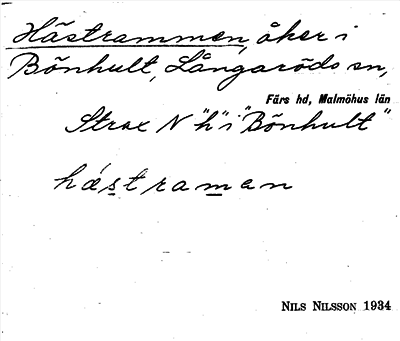 Hästrammen, åker i
Bönhult, Långaröds sn,
Färs hd, Malmöhus län
Strax N "h" i "Bönhult"
hástraman
NILS NILSSON 1934